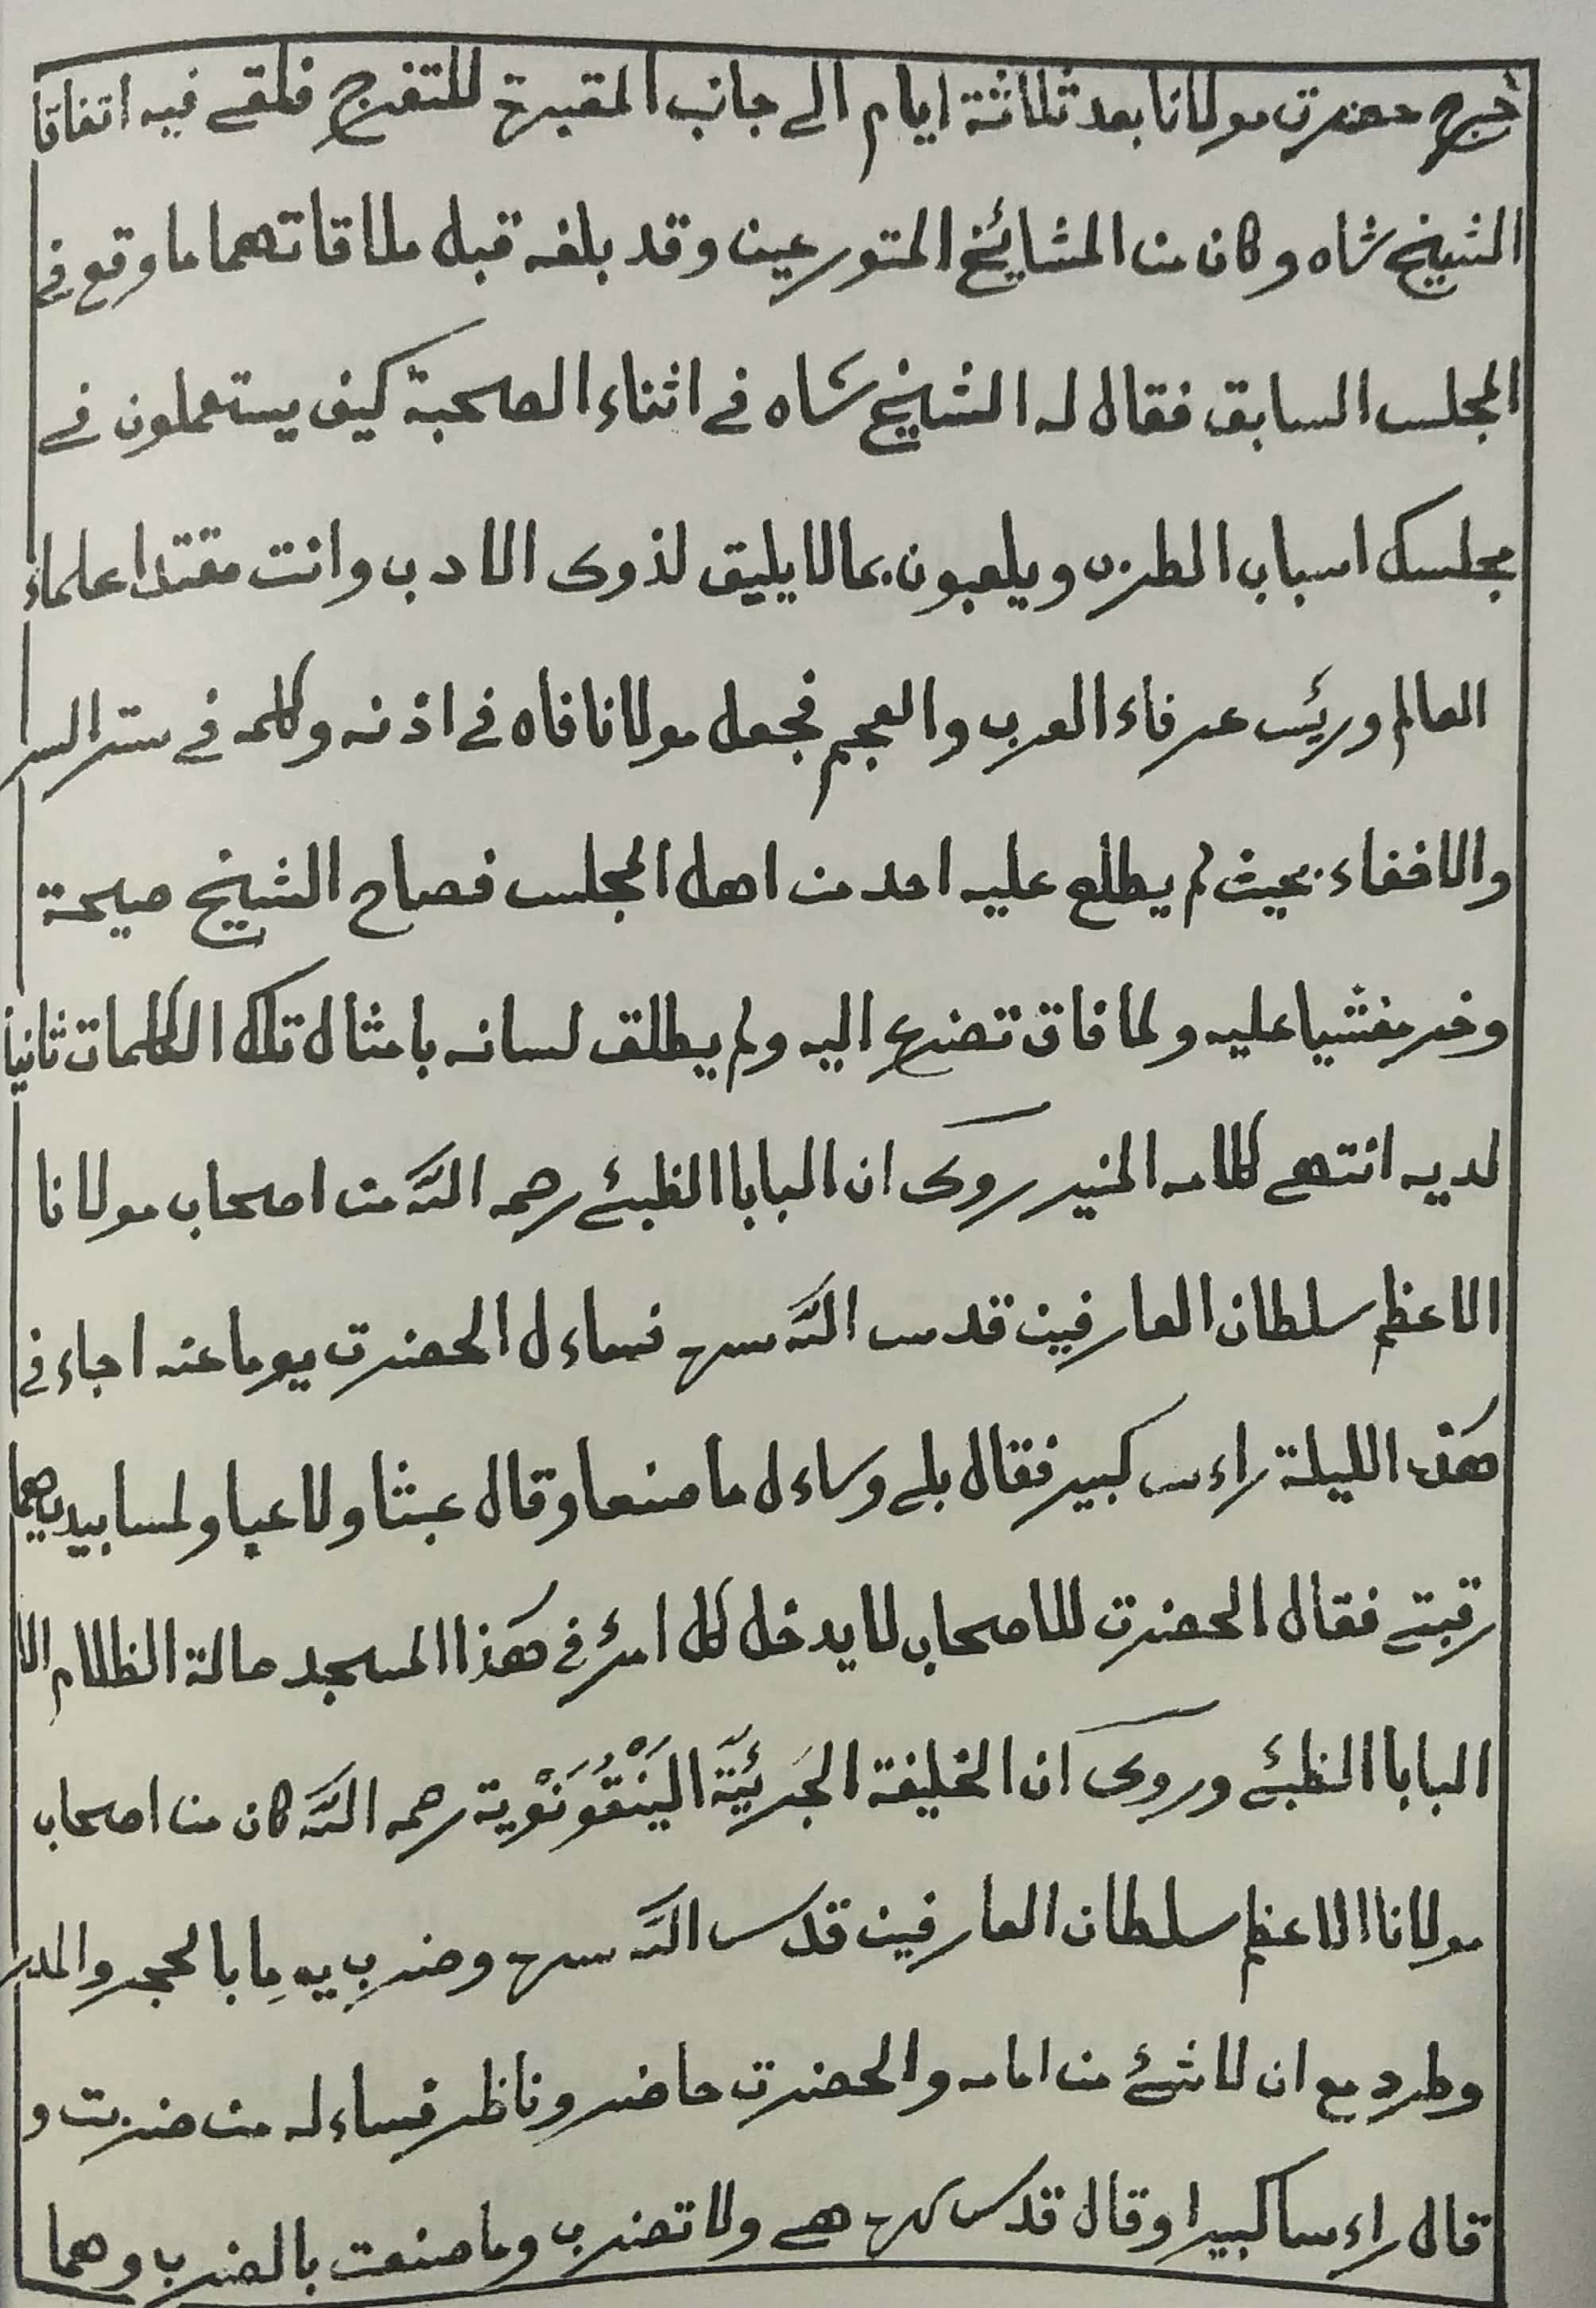 خرج حضرت مولانا بعد ثلاثة ايام الى جانب المقبرة للتفرج فلقى فيه اتفاقا
الشيخ شاه وكان من المشائخ المتورعين وقد بلغه قبل ملاقاتهما ما وقع في
المجلس السابق فقال له الشيخ شاه في اثناء الصحبة كيف يستعملون في
مجلسك اسباب الطرب ويلعبون بمالا يليق لذوى الادب وانت مقتدا علماء
العالم ورئيس عرفاء العرب والعجم فجعل مولانا فاه في اذنه وكلمه في ستر السر
والاخفاء بحيث لم يطلع عليه احد من اهل المجلس فصاح الشيخ صيحة
وخر مغشيا عليه ولما فاق تضرع اليه ولم يطلق لسانه بامثال تلك الكلمات ثانياً
لديه انتهى كلامه المنير روى ان البابا الظبئ رحمه الله من اصحاب مولانا
الاعظم سلطان العارفين قدس الله سره فساءل الحضرت يوما عنه اجاء في
هذه الليلة راءس كبير فقال بلى وساءل ما صنعا وقال عبثا ولاعبا ولمسا بيديهما
رقبتي فقال الحضرت للاصحاب لا يدخل كل امرئ في هذا المسجد حالة الظلام الا
البابا الظبئ وروى ان الخليفة الجَرئِيَّة اليَنْقُونَوْية رحمه الله كان من اصحاب
مولانا الاعظم سلطان العارفين قدس الله سره وضرب يوما بالحجر والمدر
وطرد مع ان لا شئ من امامه والحضرت حاضر وناظر فساءله من ضربت و
قال راءسا كبيرا وقال قدس سره هي ولا تضرب وما صنعت بالضرب وهما